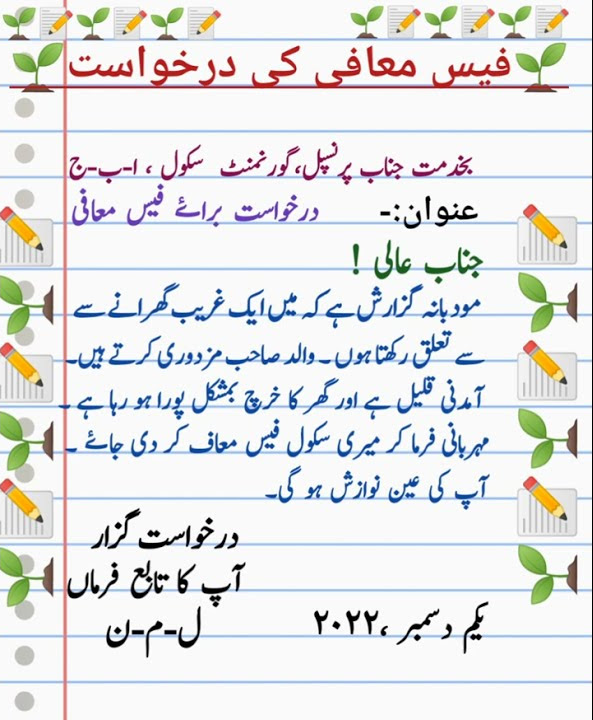 فیس معافی کی درخواست
بخدمت جناب پرنسپل،گورنمنٹ سکول ، ا-ب-ج
عنوان:- درخواست برائے فیس معافی
جناب عالی !
مودبانہ گزارش ہے کہ میں ایک غریب گھرانے سے
سے تعلق رکھتا ہوں۔ والد صاحب مزدوری کرتے ہیں۔
آمدنی قلیل ہے اور گھر کا خرچ بمشکل پورا ہو رہا ہے ۔
مہربانی فرما کر میری سکول فیس معاف کر دی جائے ۔
آپ کی عین نوازش ہو گی۔
درخواست گزار
آپ کا تابع فرماں
یکم دسمبر ،۲۰۲۲ ل-م-ن